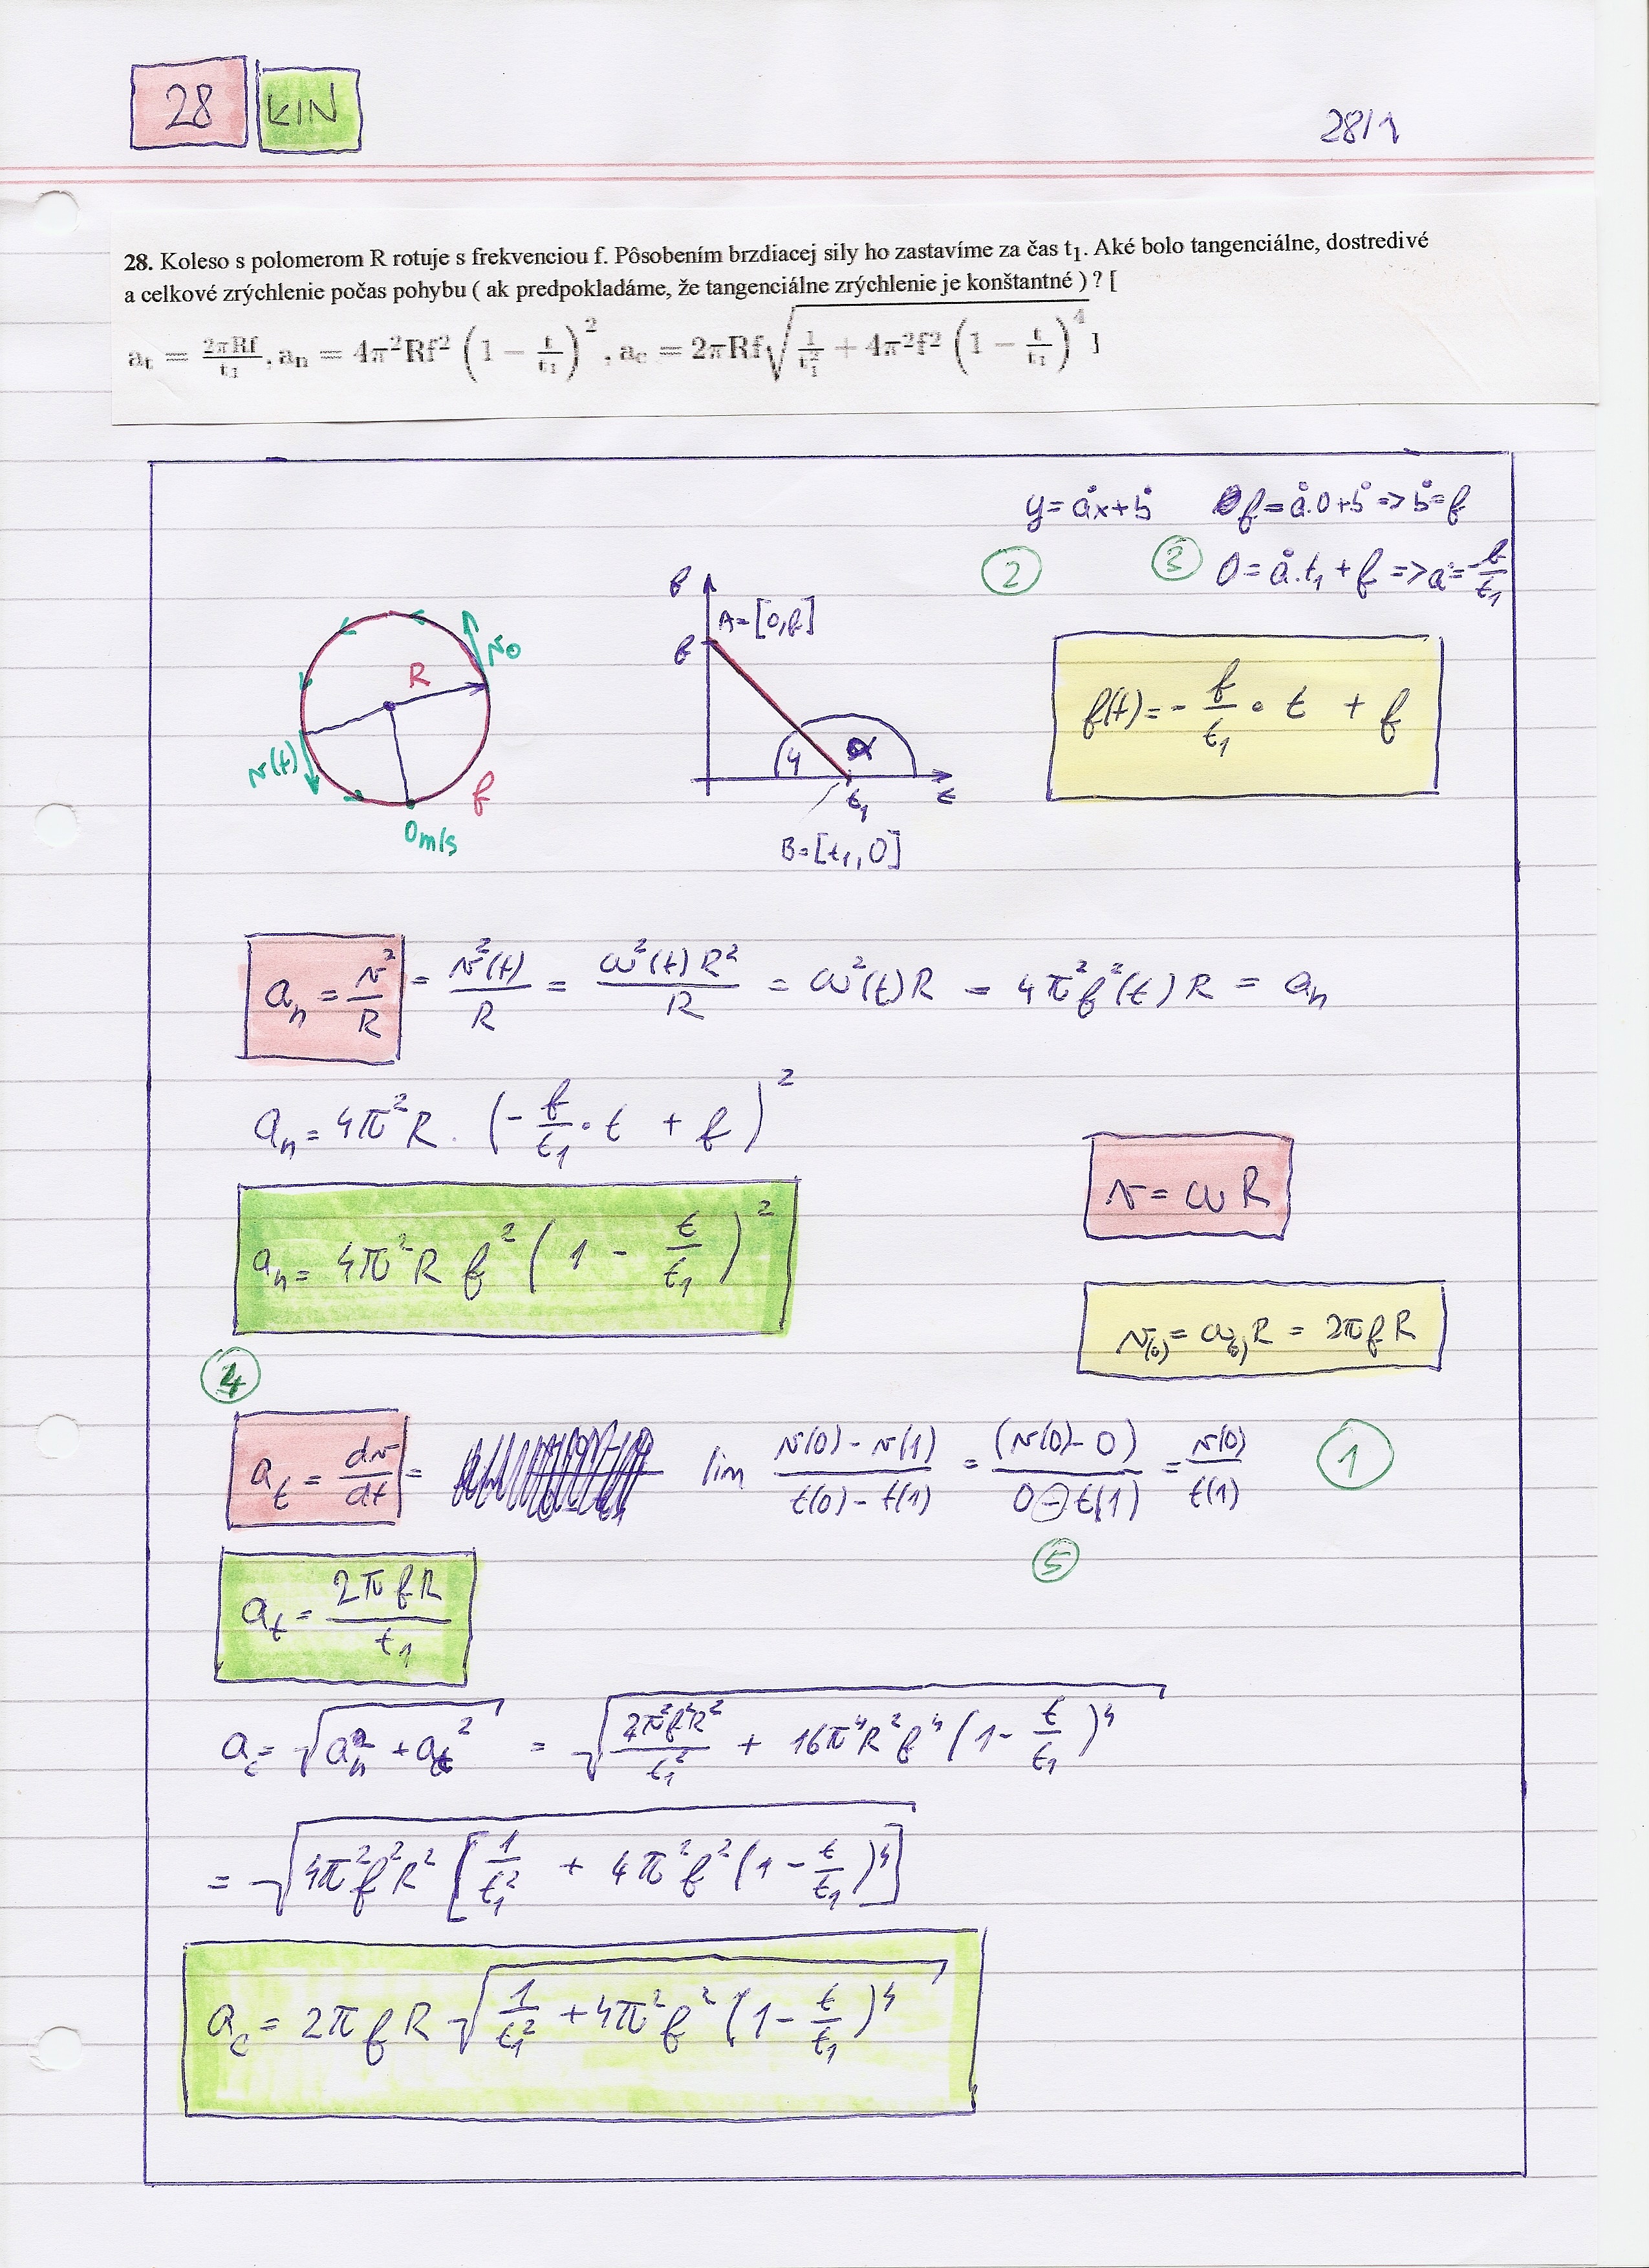 28 KIN
28/1
28. Koleso s polomerom R rotuje s frekvenciou f. Pôsobením brzdiacej sily ho zastavíme za čas t₁. Aké bolo tangenciálne, dostredivé
a celkové zrýchlenie počas pohybu ( ak predpokladáme, že tangenciálne zrýchlenie je konštantné ) ? [
aₜ = 2πRf/t₁, aₙ = 4π²Rf² (1 − t/t₁)², a_c = 2πRf√(1/t₁² + 4π²f² (1 − t/t₁)⁴) ]
y = åx + b° f = å.0 + b° => b° = f
2 3 0 = å.t₁ + f => a = -f/t₁
f
A=[0,f]
f
R
v₀
v(t)
f
0m/s
φ α
t₁ t
B=[t₁,0]
f(t) = - f/t₁ · t + f
aₙ = v²/R = v²(t)/R = ω²(t)R²/R = ω²(t)R = 4π²f²(t)R = aₙ
aₙ = 4π²R . (- f/t₁ · t + f)²
v = ωR
aₙ = 4π²R f² (1 - t/t₁)²
v(0) = ω(0)R = 2πfR
4
aₜ = dv/dt = lim (v(0) - v(1))/(t(0) - t(1)) = (v(0) - 0)/(0 - t(1)) = v(0)/t(1) 1
5
aₜ = 2πfR/t₁
a_c = √(aₙ² + aₜ²) = √(2π²f²R²/t₁² + 16π⁴R²f⁴(1 - t/t₁)⁴)
= √(4π²f²R² [1/t₁² + 4π²f²(1 - t/t₁)⁴])
a_c = 2πfR √(1/t₁² + 4π²f²(1 - t/t₁)⁴)